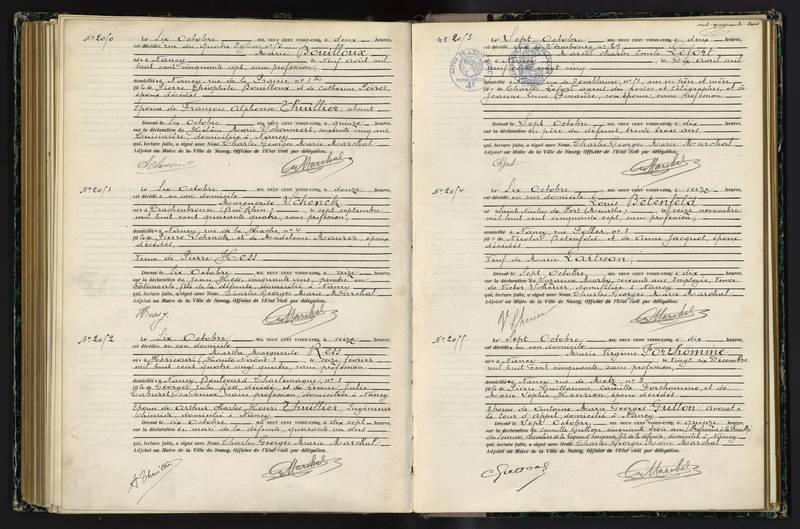 N° 2050
Le Six Octobre MIL NEUF CENT VINGT-CINQ, à deux heures,
est décédée rue des Quatre Eglises, n°
Marie Bouilloux
née à Nancy le neuf août mil
huit cent cinquante sept, sans profession,
domiciliée à Nancy, rue de la Prairie, n°
fille de Pierre Théophile Bouilloux, et de Catherine Poirot,
époux décédés
Epouse de François Alphonse Thuillier, absent
Dressé le Six Octobre MIL NEUF CENT VINGT-CINQ, à quinze heures,
sur la déclaration de Hélène Marie soixante cinq ans,
Cuisinière, domiciliée à Nancy
qui, lecture faite, a signé avec Nous Charles Georges Marie Marchal
Adjoint au Maire de la Ville de Nancy, Officier de l'Etat civil par délégation.
N° 2051
Le Six Octobre MIL NEUF CENT VINGT-CINQ, à douze heures,
est décédée en son domicile
Marguerite Schenck
née à Drachenbronn (Bas Rhin) le sept septembre
mil huit cent quarante quatre, sans profession,
domiciliée à Nancy, rue de la Hache, n° 4
fille de Pierre Schenck, et de Madeleine Maurer, époux
décédés
Veuve de Pierre Hess
Dressé le Six Octobre MIL NEUF CENT VINGT-CINQ, à seize heures,
sur la déclaration de Jean Hess, cinquante ans, peintre en
bâtiments, fils de la défunte, domicilié à Nancy
qui, lecture faite, a signé avec Nous Charles Georges Marie Marchal
Adjoint au Maire de la Ville de Nancy, Officier de l'Etat civil par délégation.
Hess J.
N° 2052
Le Six Octobre MIL NEUF CENT VINGT-CINQ, à seize heures,
est décédée en son domicile
Marthe Marguerite Ress
née à Héricourt (Haute Saône) le seize février
mil huit cent quatre vingt quatre, sans profession
domiciliée à Nancy Boulevard Charlemagne, n° 1
fille de Georges Jules Ress, décédé, et de Léonie Julie
sa veuve, sans profession, domiciliée à Nancy
Epouse de Arthur Charles Henri Thuillier, Ingénieur
Chimiste, domicilié à Nancy
Dressé le six Octobre MIL NEUF CENT VINGT-CINQ, à dix sept heures,
sur la déclaration du mari de la défunte, quarante un ans
qui, lecture faite, a signé avec Nous Charles Georges Marie Marchal
Adjoint au Maire de la Ville de Nancy, Officier de l'Etat civil par délégation.
A Thuillier
N° 2053
Le Sept Octobre MIL NEUF CENT VINGT-CINQ, à deux heures,
est décédé rue de Strasbourg, n° 29
Marcel Charles Emile Lefort
né à Nancy le dix avril mil
neuf cent vingt cinq
domicilié à Nancy, rue de Tomblaine, n° 1, avec ses père et mère
fils de Charles Lefort, agent des postes et télégraphes, et de
Jeanne son épouse, sans profession
Dressé le Sept Octobre MIL NEUF CENT VINGT-CINQ, à dix heures,
sur la déclaration du père du défunt, trente trois ans
qui, lecture faite, a signé avec Nous Charles Georges Marie Marchal
Adjoint au Maire de la Ville de Nancy, Officier de l'Etat civil par délégation.
N° 2054
Le Six Octobre MIL NEUF CENT VINGT-CINQ, à seize heures,
est décédé en son domicile
Louis Betenfeld
né à Saint Nicolas de Port (Meurthe) le seize novembre
mil huit cent cinquante sept, sans profession,
domicilié à Nancy, rue Sellier, n° 1
fils de Nicolas Betenfeld, et de Anne Jacquot, époux
décédés
Veuf de Marie Lartisan,
Dressé le Sept Octobre MIL NEUF CENT VINGT-CINQ, à dix heures,
sur la déclaration de Suzanne soixante ans, Employée, veuve
de Victor domiciliée à Nancy
qui, lecture faite, a signé avec Nous Charles Georges Marie Marchal
Adjoint au Maire de la Ville de Nancy, Officier de l'Etat civil par délégation.
N° 2055
Le Sept Octobre MIL NEUF CENT VINGT-CINQ, à dix heures,
est décédée en son domicile
Marie Virginie Forthomme
née à Nancy le vingt six Décembre
mil huit cent cinquante, sans profession,
domiciliée à Nancy, rue de Metz, n° 3
fille de Pierre Guillaume Camille Forthomme, et de
Marie Sophie Henrion, époux décédés
Epouse de Antoine Marie Georges Gutton, avocat à
la Cour d'Appel, domicilié à Nancy
Dressé le Sept Octobre MIL NEUF CENT VINGT-CINQ, à quinze heures,
sur la déclaration de Camille Gutton, cinquante trois ans, Professeur à la Faculté
des Sciences, Chevalier de la Légion d'honneur, fils de la défunte, domicilié à Nancy
qui, lecture faite, a signé avec Nous Charles Georges Marie Marchal
Adjoint au Maire de la Ville de Nancy, Officier de l'Etat civil par délégation.